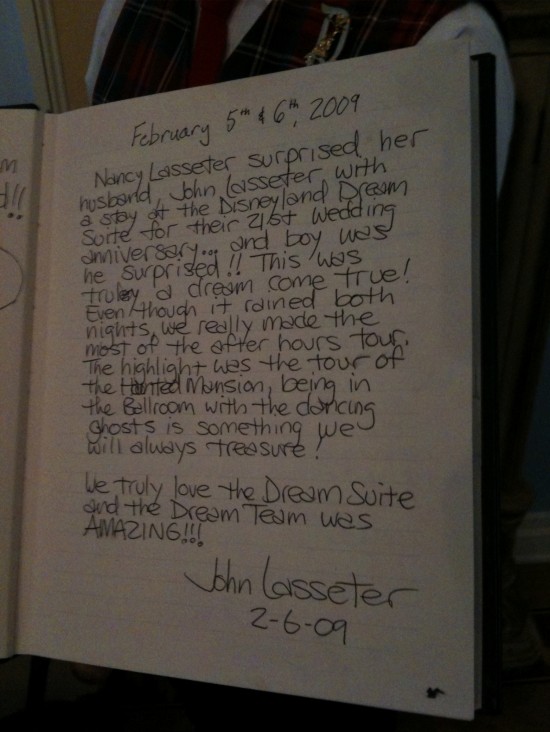 February 5th & 6th, 2009
Nancy Lasseter surprised her
husband, John Lasseter, with
a stay at the Disneyland Dream
Suite for their 21st wedding
anniversary... and boy was
he surprised!! This was
truly a dream come true!
Even though it rained both
nights, we really made the
most of the after hours tour.
The highlight was the tour of
the Hanted Mansion, being in
the Ballroom with the dancing
ghosts is something we
will always treasure!
We truly love the Dream Suite
and the Dream Team was
AMAZING!!!
John Lasseter
2-6-09